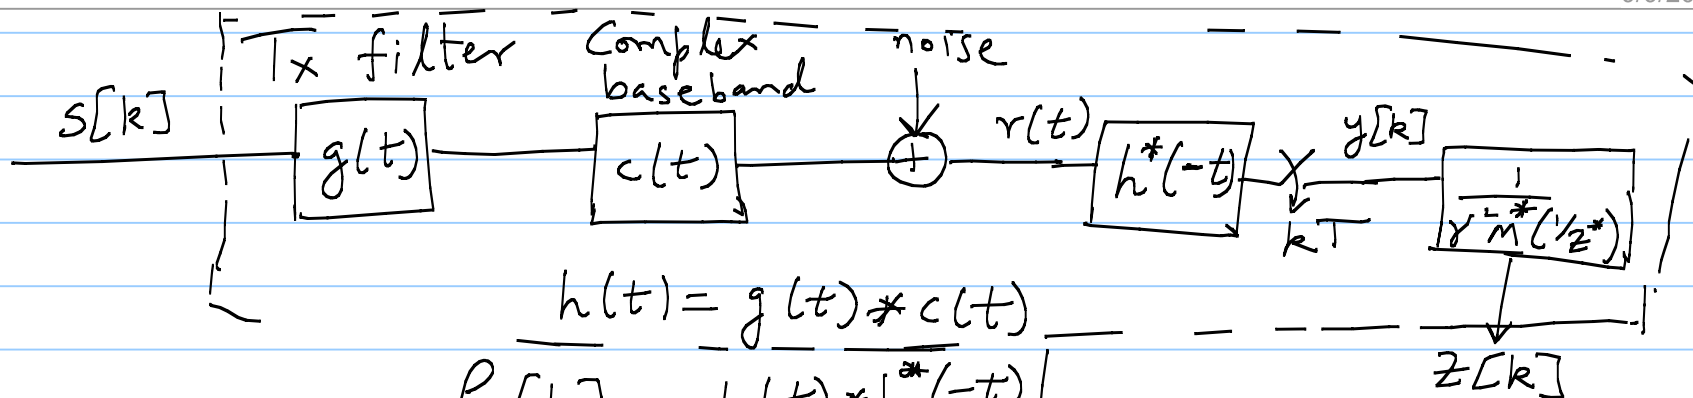 Tx filter Complex baseband noise
s[k] g(t) c(t) + r(t) h*(-t) kT y[k] 1/γ² M*(1/z*)
h(t) = g(t) * c(t)
z[k]